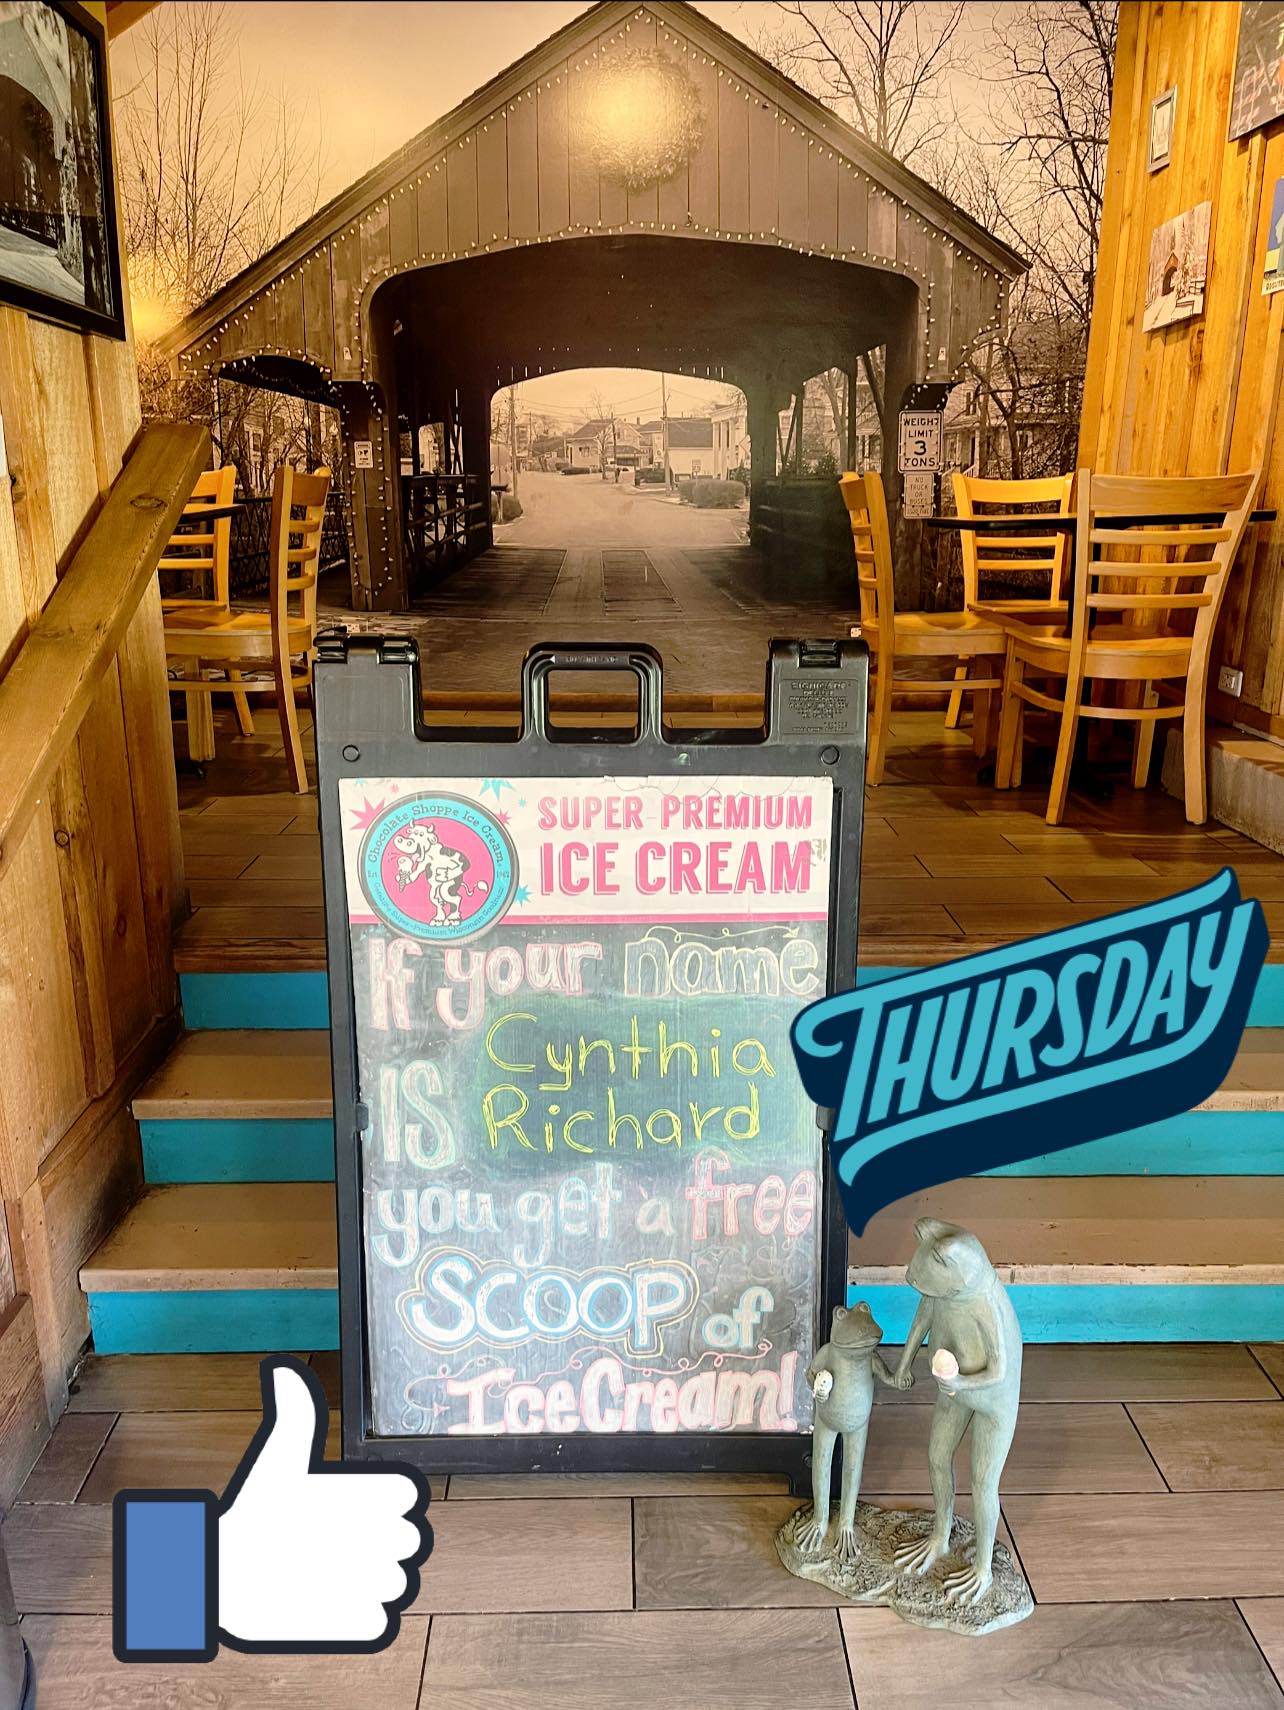 WEIGHT
LIMIT
3
TONS
NO
TRUCK
OR
BUSES
Chocolate Shoppe Ice Cream
SUPER PREMIUM
ICE CREAM
If your name
IS Cynthia
Richard
you get a free
SCOOP of
Ice Cream!
THURSDAY